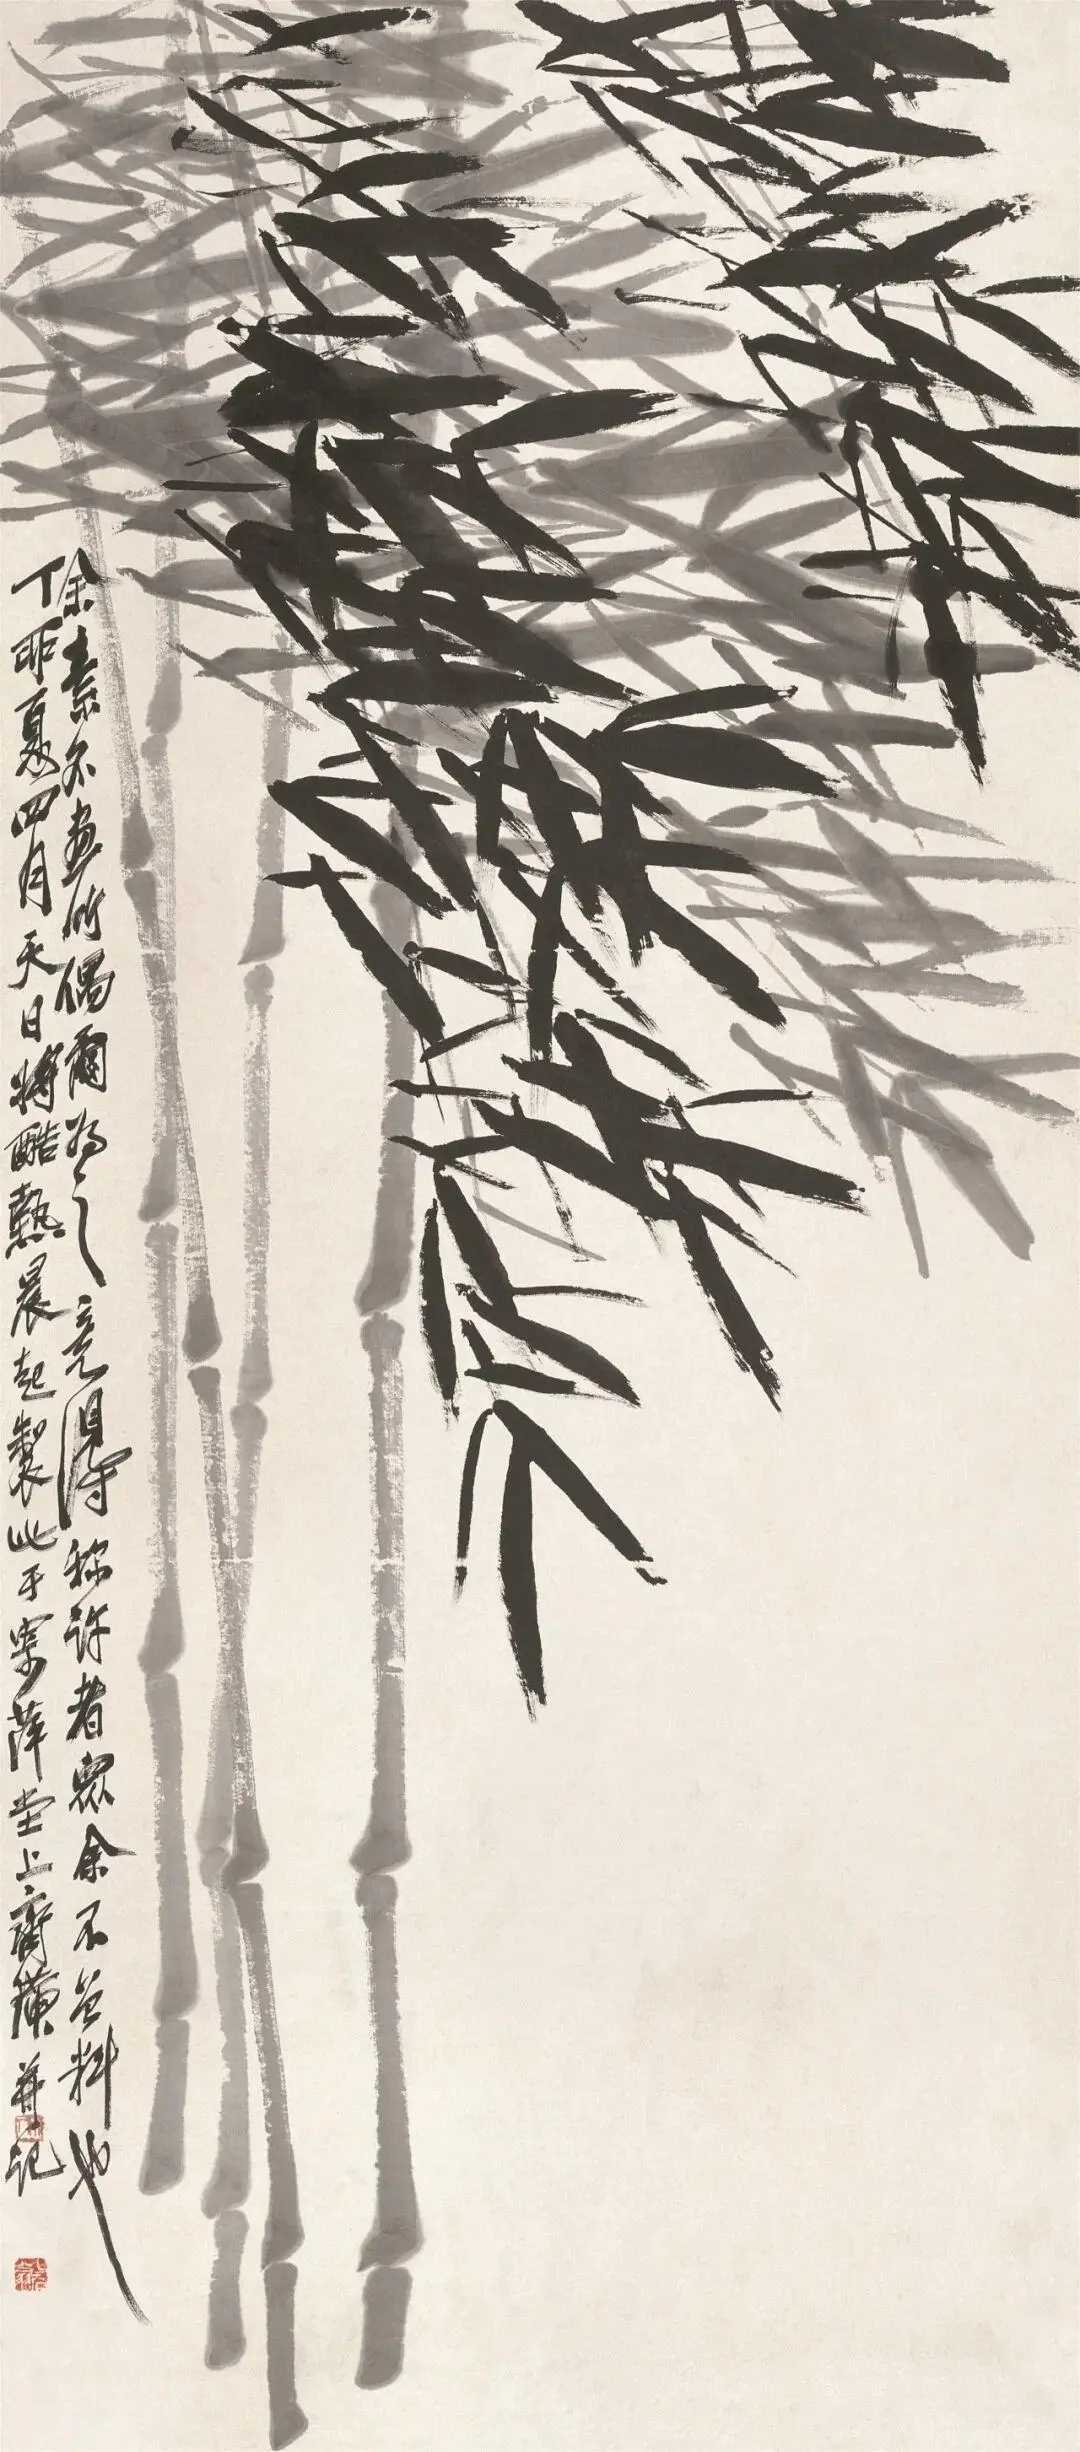 余素不画竹偶爾为之竟得称许者衆余不自料也
丁卯夏四月天日将酷熱晨起製此于寄萍堂上齊璜并记